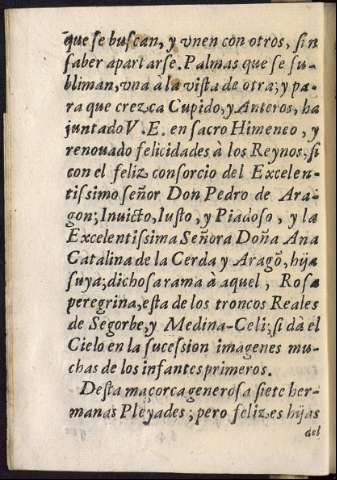 que se buscan, y vnen con otros, sin
saber apartarse. Palmas que se su-
bliman, vna à la vista de otra; y pa-
ra que crezca Cupido, y Anteros, ha
juntado V. E. en sacro Himeneo, y
renouado felicidades à los Reynos, si
con el feliz consorcio del Excelen-
tissimo señor Don Pedro de Ara-
gon; Inuicto, Iusto, y Piadoso, y la
Excelentissima Señora Doña Ana
Catalina de la Cerda y Aragõ, hija
suya; dichosa rama à aquel, Rosa
peregrina, esta de los troncos Reales
de Segorbe, y Medina-Celi; si dà el
Cielo en la sucession imagenes mu-
chas de los infantes primeros.
Desta maçorca generosa siete her-
manas Pleyades; pero felizes hijas
del